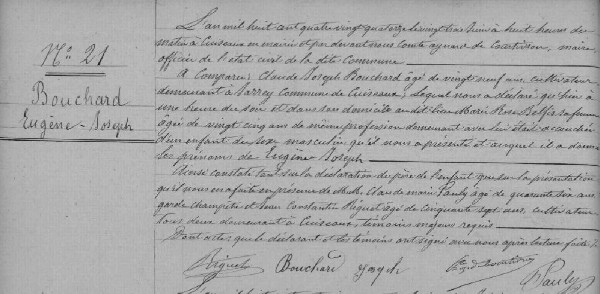 No 21
Bouchard
Eugène-Joseph
L'an mil huit cent quatre vingt quatorze le vingt trois Juin à huit heures du
matin à Cuiseaux en mairie et par devant nous Comte aymare de maire,
officier de l'état civil de la dite Commune
A Comparu, Claude Joseph Bouchard âgé de vingt neuf ans cultivateur
demeurant à Sarrey Commune de Cuiseaux, lequel nous a déclaré que hier à
une heure du soir et dans son domicile au dit lieu Marie Rose sa femme
âgée de vingt cinq ans de même profession demeurant avec lui était accouchée
d'un enfant du sexe masculin qu'il nous a présenté et auquel il a donné
les prénoms de Eugène Joseph
Ainsi constaté tant sur la déclaration du père de l'enfant que sur la présentation
qu'il nous en a faite en présence de Claude marie Pauly âgé de quarante six ans
garde champêtre et Jean Constantin Piguet âgé de cinquante sept ans, cultivateur
tous deux demeurant à Cuiseaux, témoins majeurs requis
Dont acte que le déclarant et les témoins ont signé avec nous après lecture faite
Piguet Bouchard Joseph Pauly